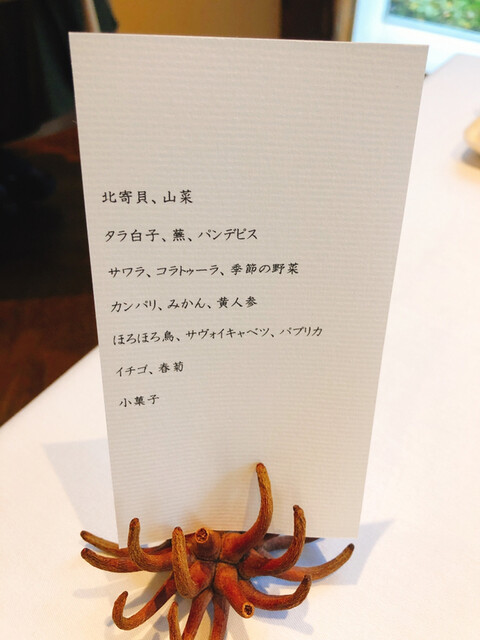 北寄貝、山菜
タラ白子、蕪、パンデピス
サワラ、コラトゥーラ、季節の野菜
カンパリ、みかん、黄人参
ほろほろ鳥、サヴォイキャベツ、パプリカ
イチゴ、春菊
小菓子